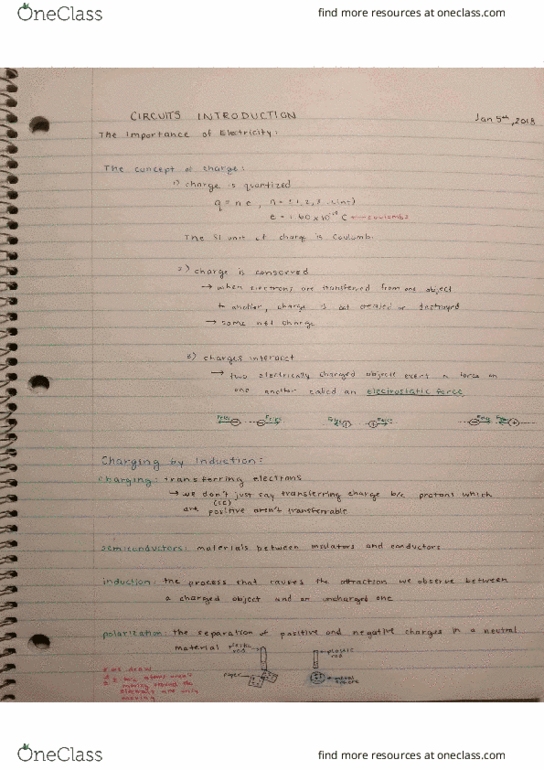 OneClass
find more resources at oneclass.com
CIRCUITS INTRODUCTION
Jan 5th, 2018
The Importance of Electricity:
The concept of charge:
1) charge is quantized
q = n e, n = ±1, 2, 3
e = 1.60 x 10 C coulombs
The SI unit of charge is Coulomb.
2) charge is conserved
→ when electrons are transferred from one object
to another, charge is not created or destroyed
→ same net charge
3) charges interact
→ two electrically charged objects exert a force on
one another called an electrostatic force
Charging by Induction:
charging: transferring electrons
→ we don't just say transferring charge b/c protons which
are positive aren't transferrable
semiconductors: materials between insulators and conductors
induction: the process that causes the attraction we observe between
a charged object and an uncharged one
polarization: the separation of positive and negative charges in a neutral
material
plastic rod
plastic rod
paper
OneClass
find more resources at oneclass.com